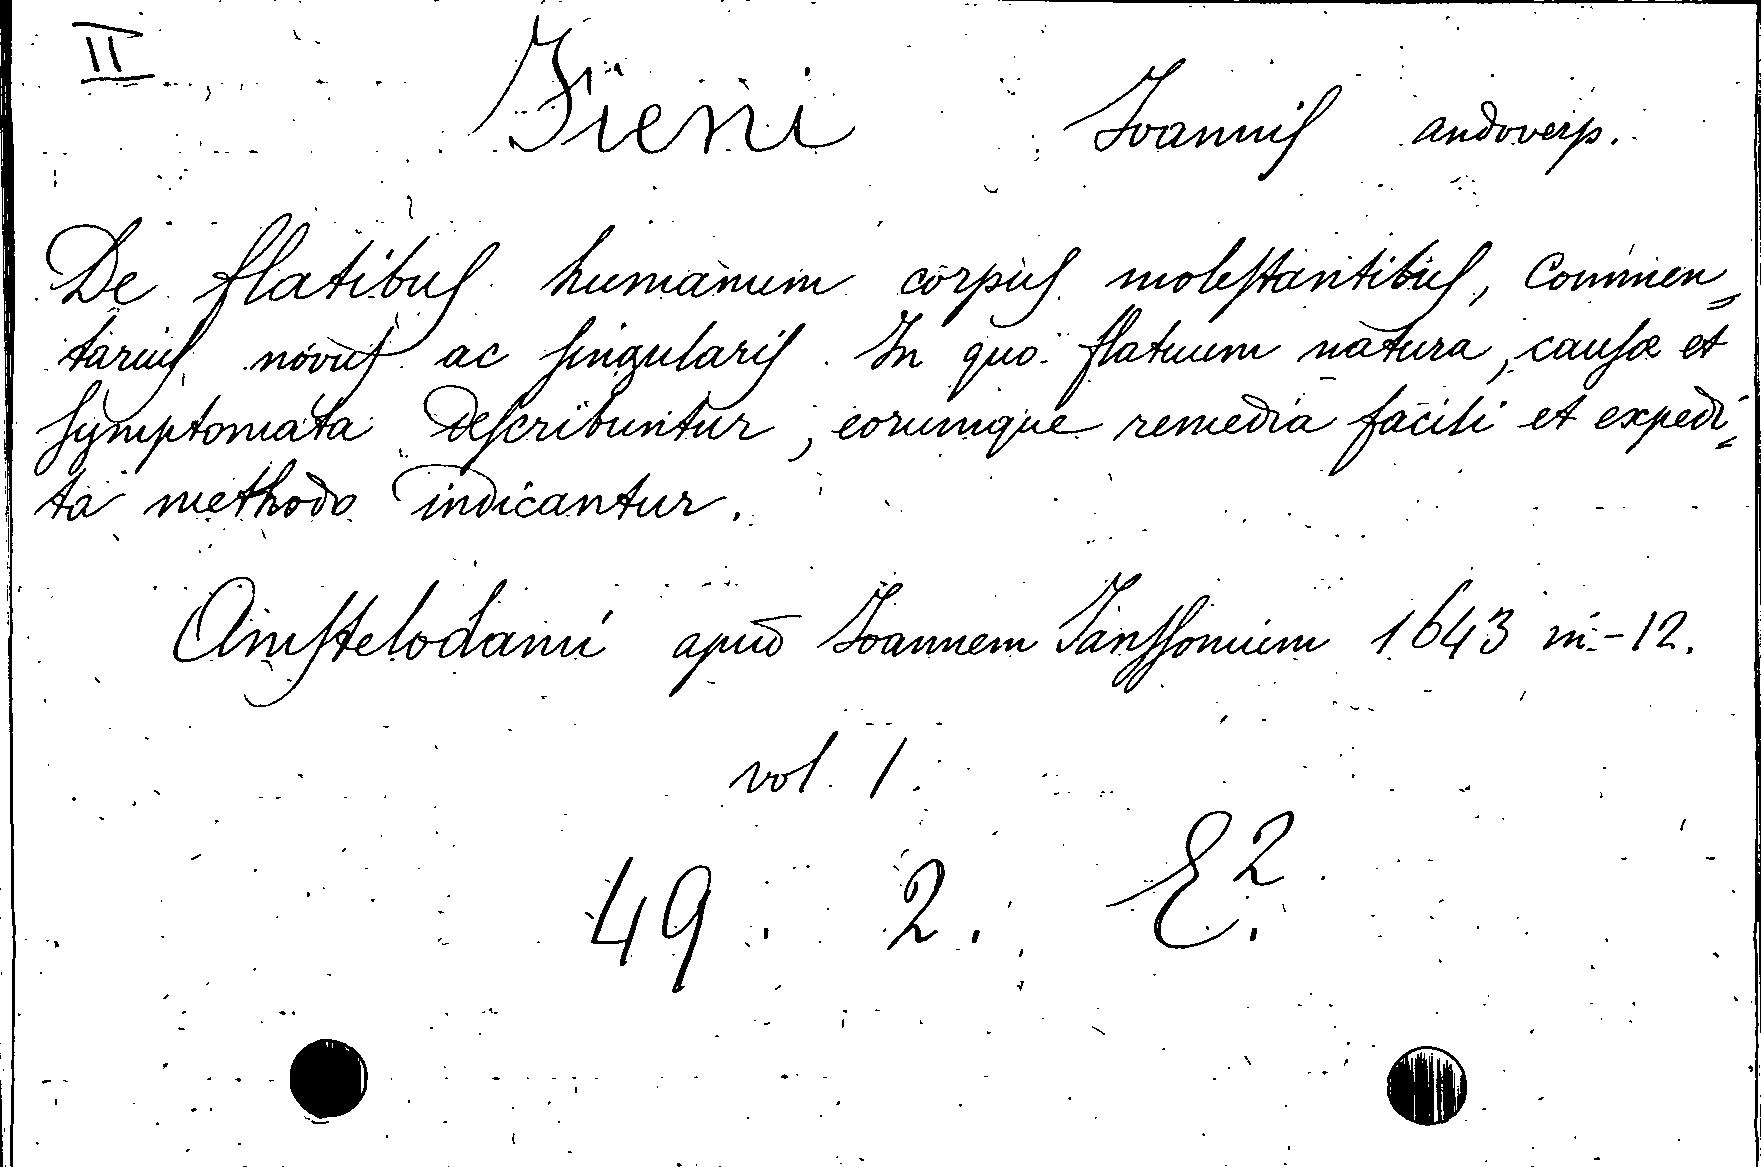 II Fieni Joannis andoverp.
De flatibus humanum corpus molestantibus, Commen„
tarius novus ac singularis. In quo flatuum natura, causæ et
symptomata describuntur, eorumque remedia facili et expedi„
ta methodo indicantur.
Amstelodami apud Joannem Janssonium 1643 in-12.
vol. 1.
49. 2. E².